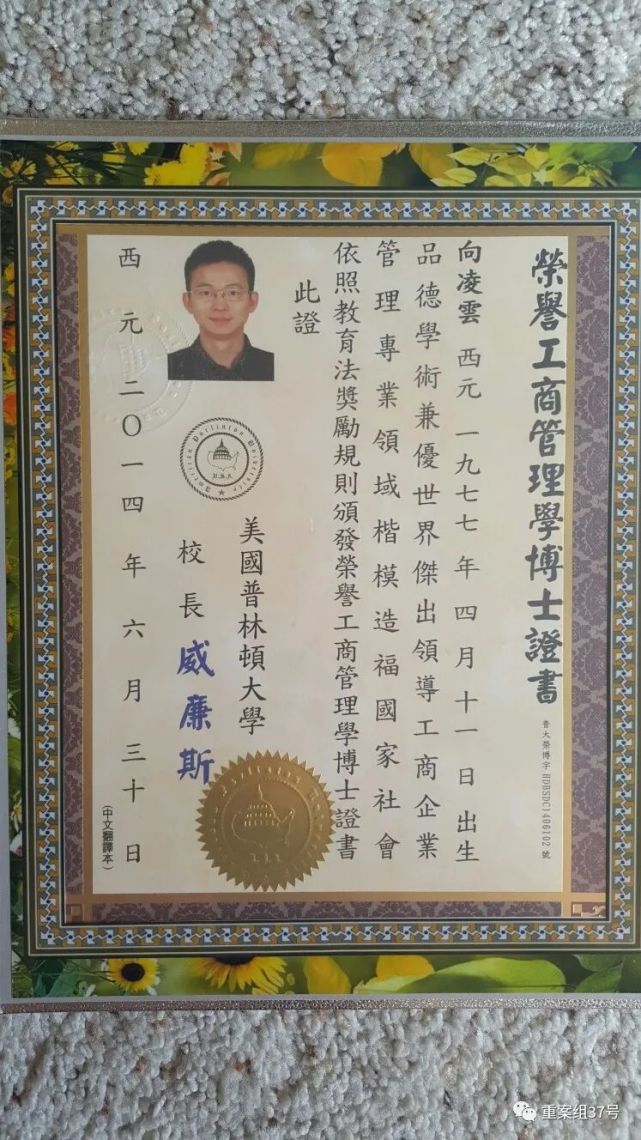 榮譽工商管理學博士證書
普大榮博字HDBSDC1406102號
向凌雲 西元一九七七年四月十一日出生
品德學術兼優世界傑出領導工商企業
管理專業領域楷模造福國家社會
依照教育法獎勵規則頒發榮譽工商管理學博士證書
此證
美國普林頓大學
校長威廉斯
American Purlinton University
西元二〇一四年六月三十日
(中文翻譯本)
重案组37号